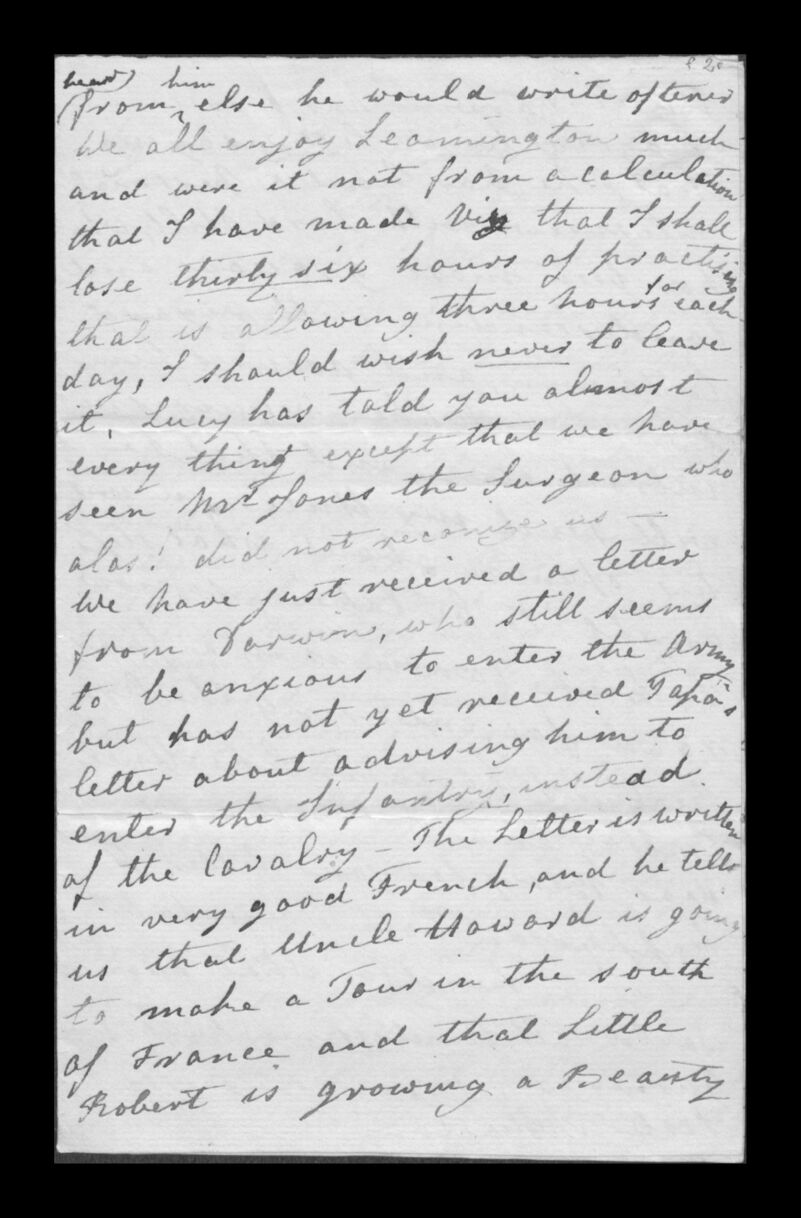 heard) him
(from ‸ else he would write oftener
We all enjoy Leamington much
and were it not from a calculation
that I have made viz that I shall
lose thirty six hours of practising
that is allowing three hours for each
day, I should wish never to leave
it, Lucy has told you almost
every thing except that we have
seen Mr Jones the Surgeon who
alas! did not reconize us —
We have just received a letter
from Darwin, who still seems
to be anxious to enter the Army
but has not yet received Papa's
letter about advising him to
enter the Infantry, instead
of the Cavalry – The Letter is written
in very good French, and he tells
us that Uncle Howard is going
to make a Tour in the south
of France and that Little
Robert is growing a Beauty